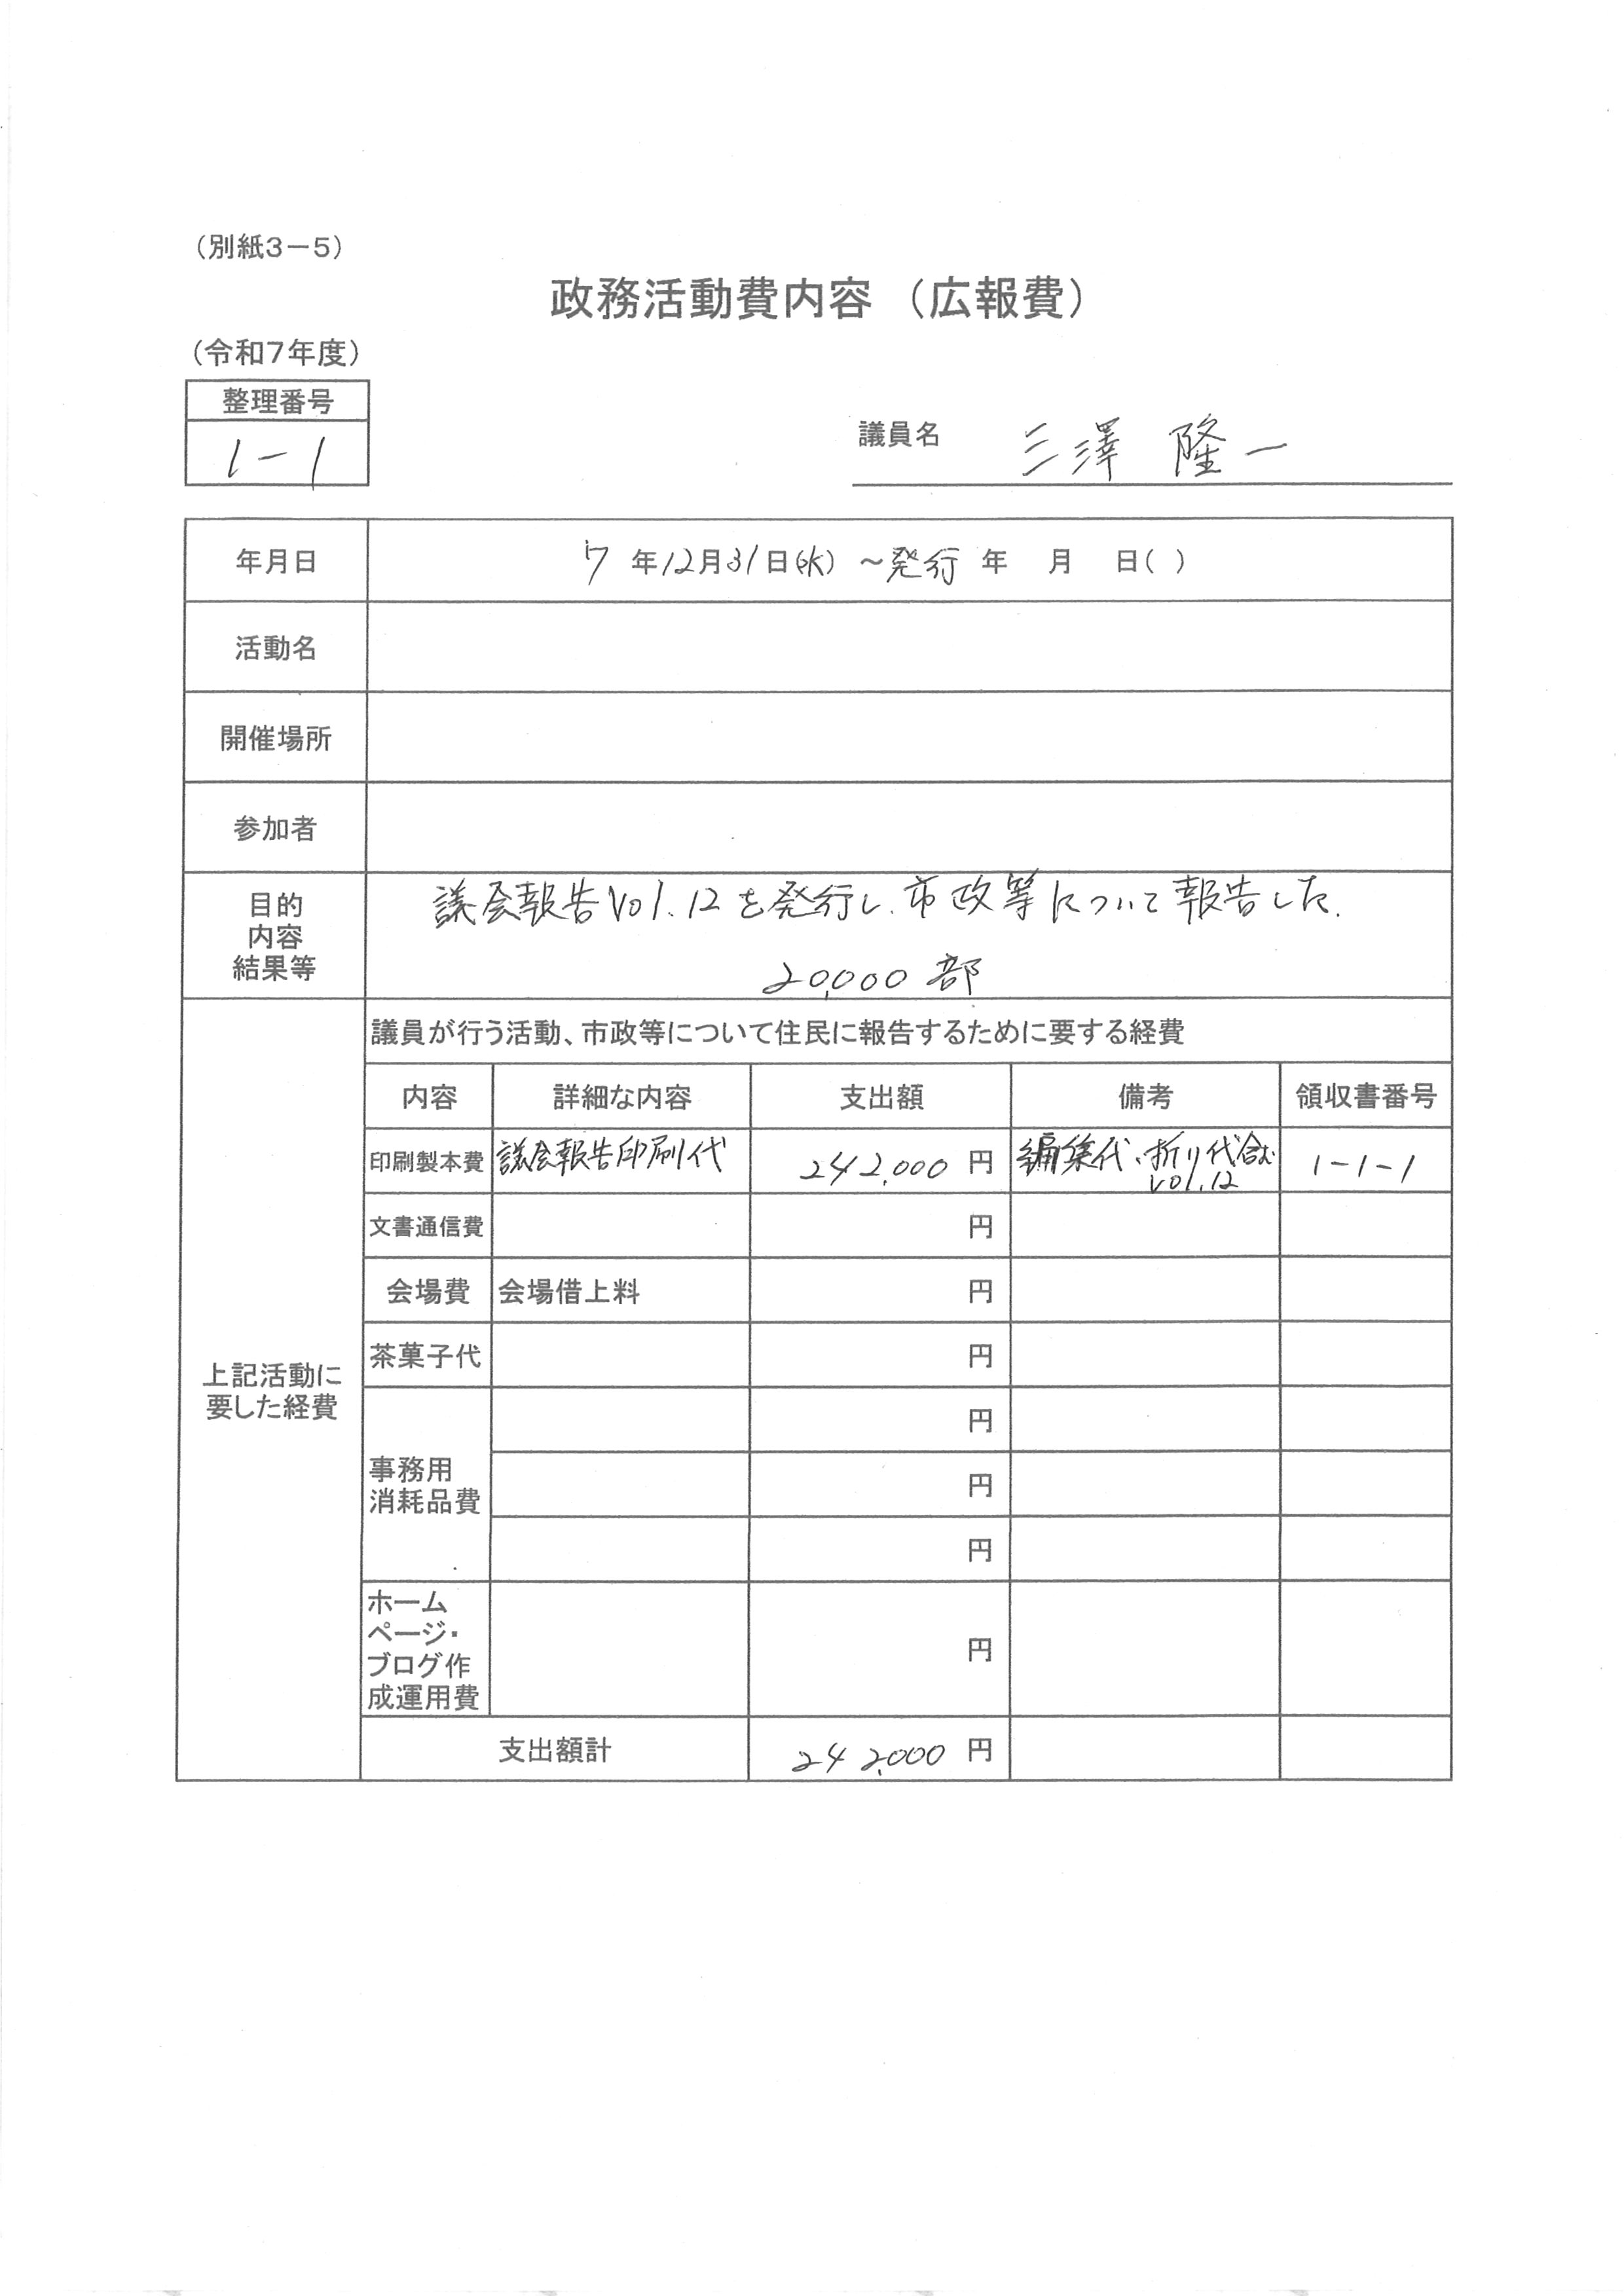 （別紙3－5）
政務活動費内容（広報費）
（令和7年度）
整理番号
1-1
議員名 三澤 隆一
年月日 7 年 12 月 31 日(水) ～発行 年 月 日( )
活動名
開催場所
参加者
目的
内容
結果等
議会報告Vol.12を発行し、市政等について報告した。
20,000 部
上記活動に
要した経費
議員が行う活動、市政等について住民に報告するために要する経費
内容 詳細な内容 支出額 備考 領収書番号
印刷製本費 議会報告印刷代 242,000 円 編集代・折り代含む 1-1-1
Vol.12
文書通信費 円
会場費 会場借上料 円
茶菓子代 円
事務用
消耗品費
円
円
円
ホーム
ページ・
ブログ作
成運用費
円
支出額計 242,000 円